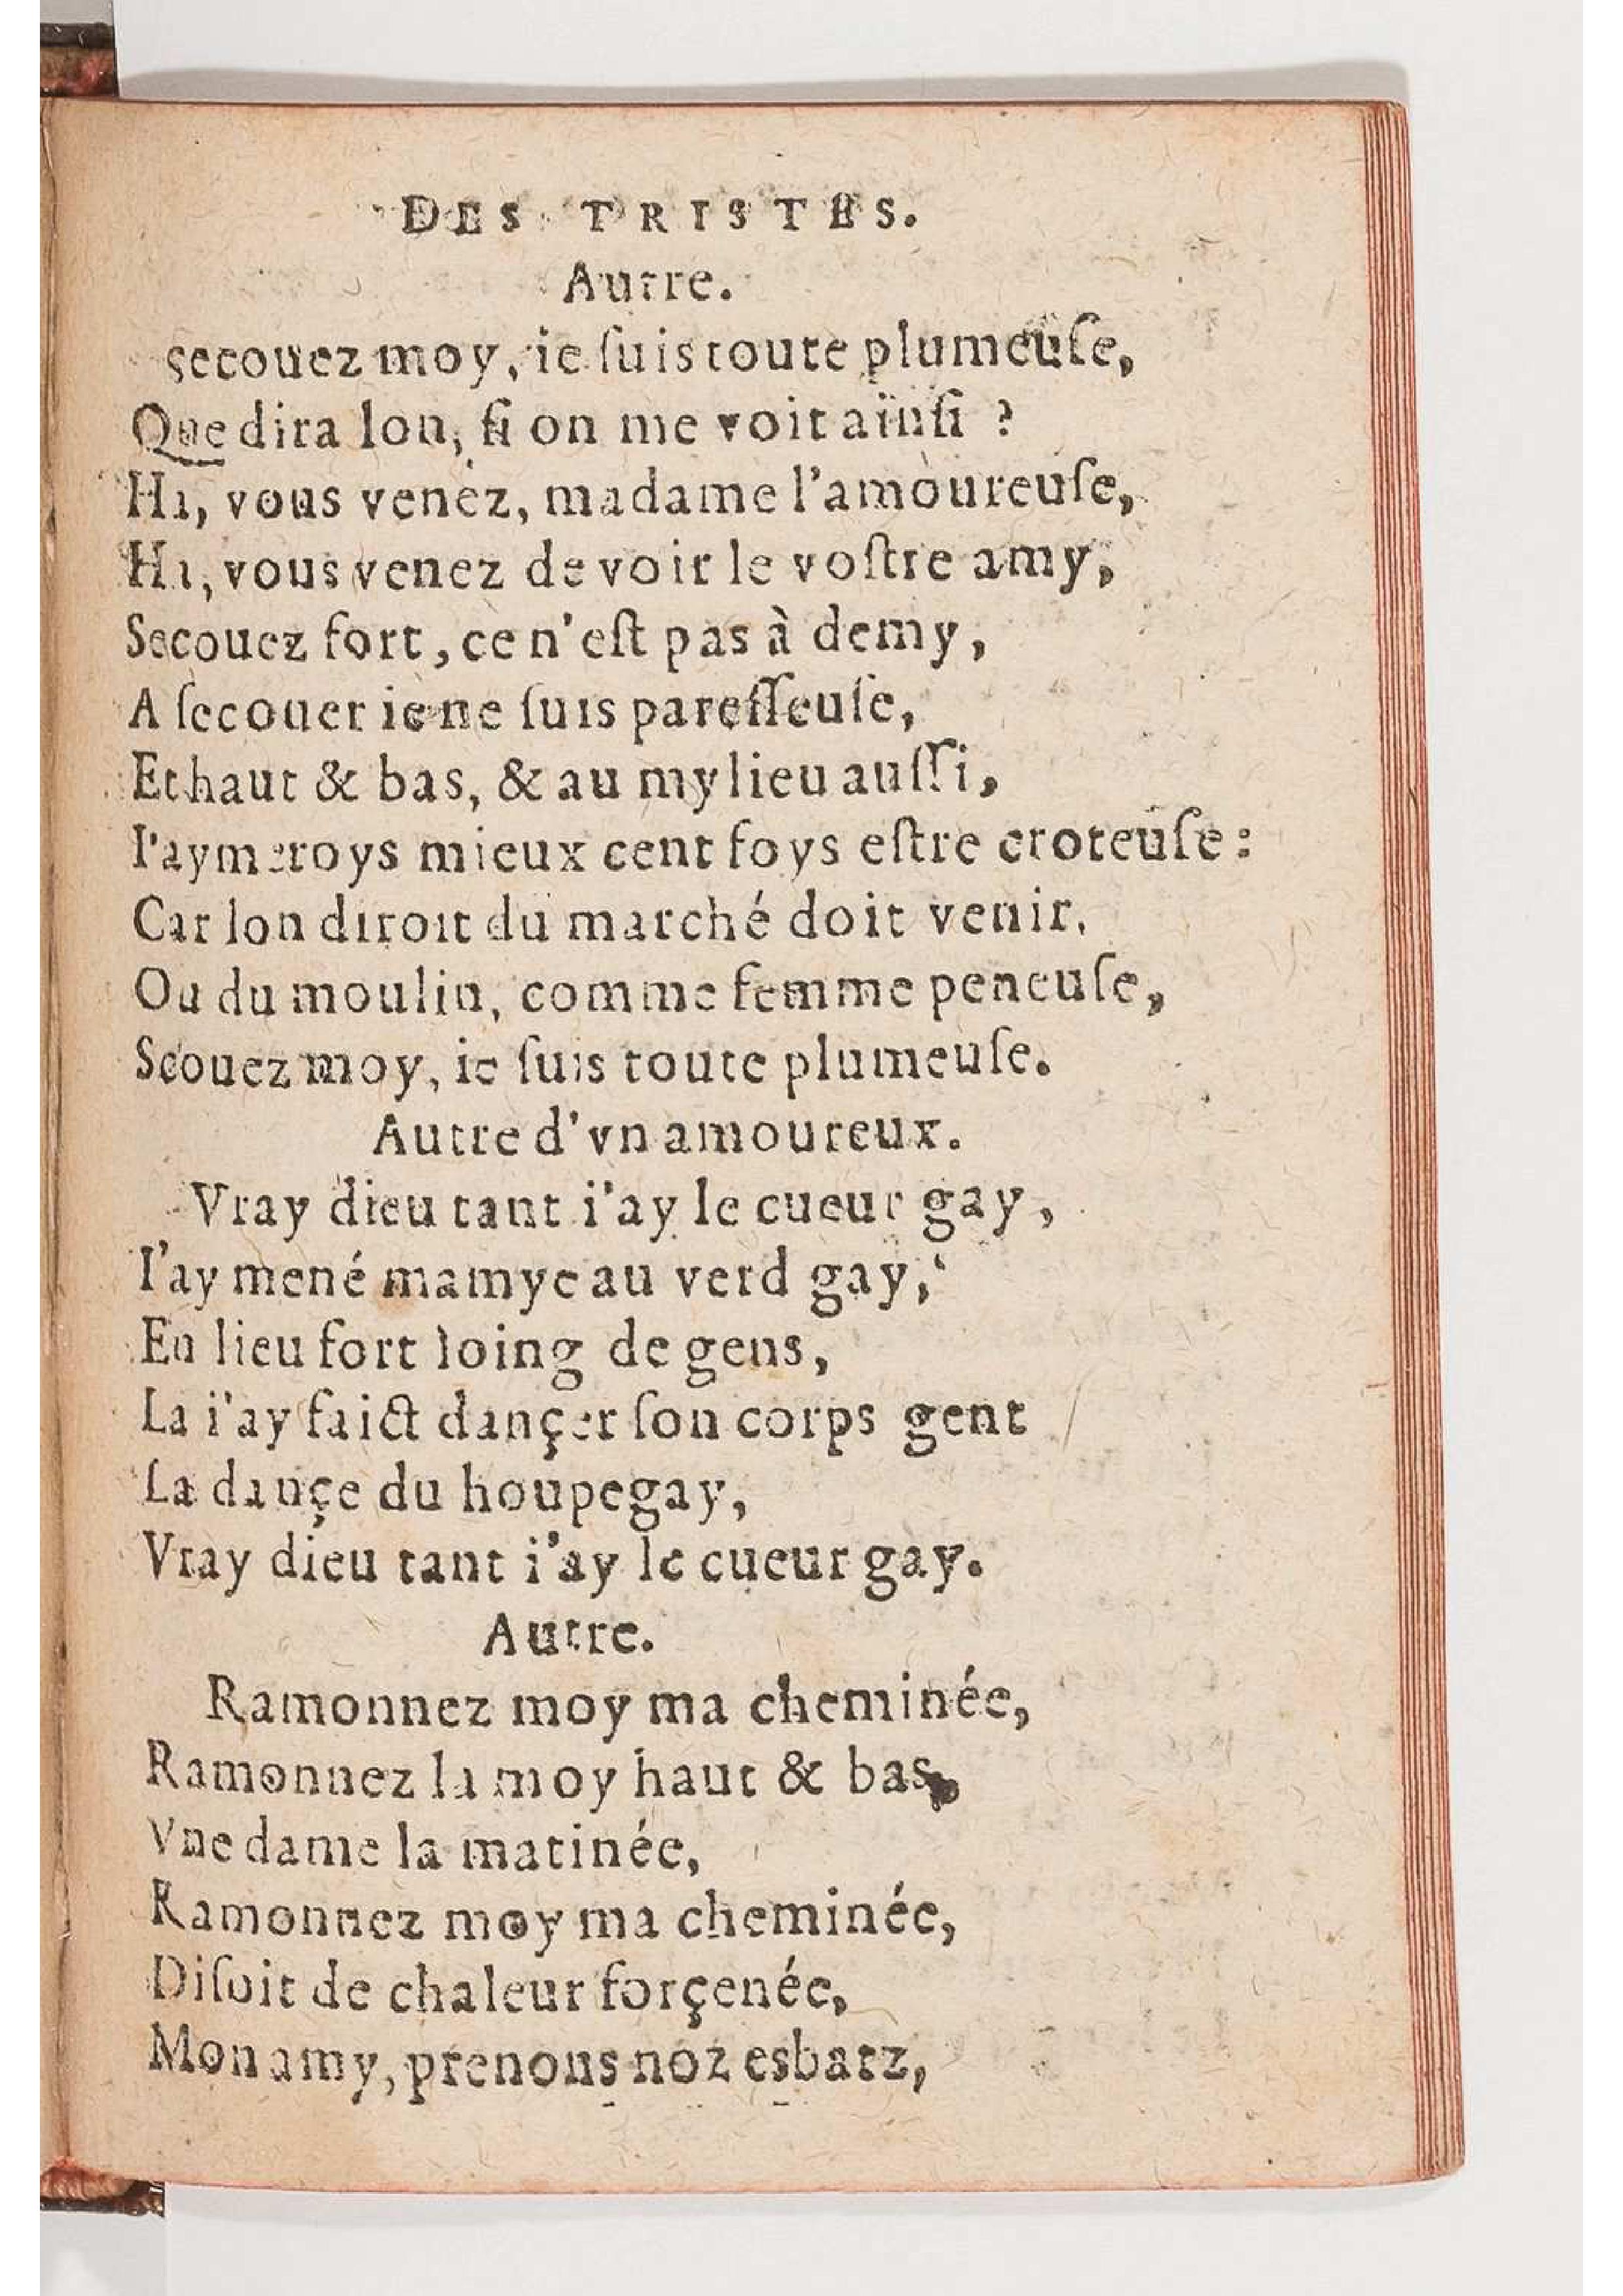 DES TRISTES.
Autre.
Secouez moy, ie ſuis toute plumeuſe,
Que dira lon, ſi on me voit ainſi ?
Hi, vous venez, madame l'amoureuſe,
Hi, vous venez de voir le voſtre amy,
Secouez fort, ce n'eſt pas à demy,
A ſecouer ie ne ſuis pareſſeuſe,
Et haut & bas, & au mylieu auſſi,
I'aymeroys mieux cent foys eſtre croteuſe :
Car lon diroit du marché doit venir.
Ou du moulin, comme femme peneuſe,
Scouez moy, ie ſuis toute plumeuſe.
Autre d'vn amoureux.
Vray dieu tant i'ay le cueur gay,
I'ay mené mamye au verd gay,
En lieu fort loing de gens,
La i'ay faict dançer ſon corps gent
La dançe du houpegay,
Vray dieu tant i'ay le cueur gay.
Autre.
Ramonnez moy ma cheminée,
Ramonnez la moy haut & bas,
Vne dame la matinée,
Ramonnez moy ma cheminée,
Diſoit de chaleur forçenée,
Mon amy, prenons noz esbatz,